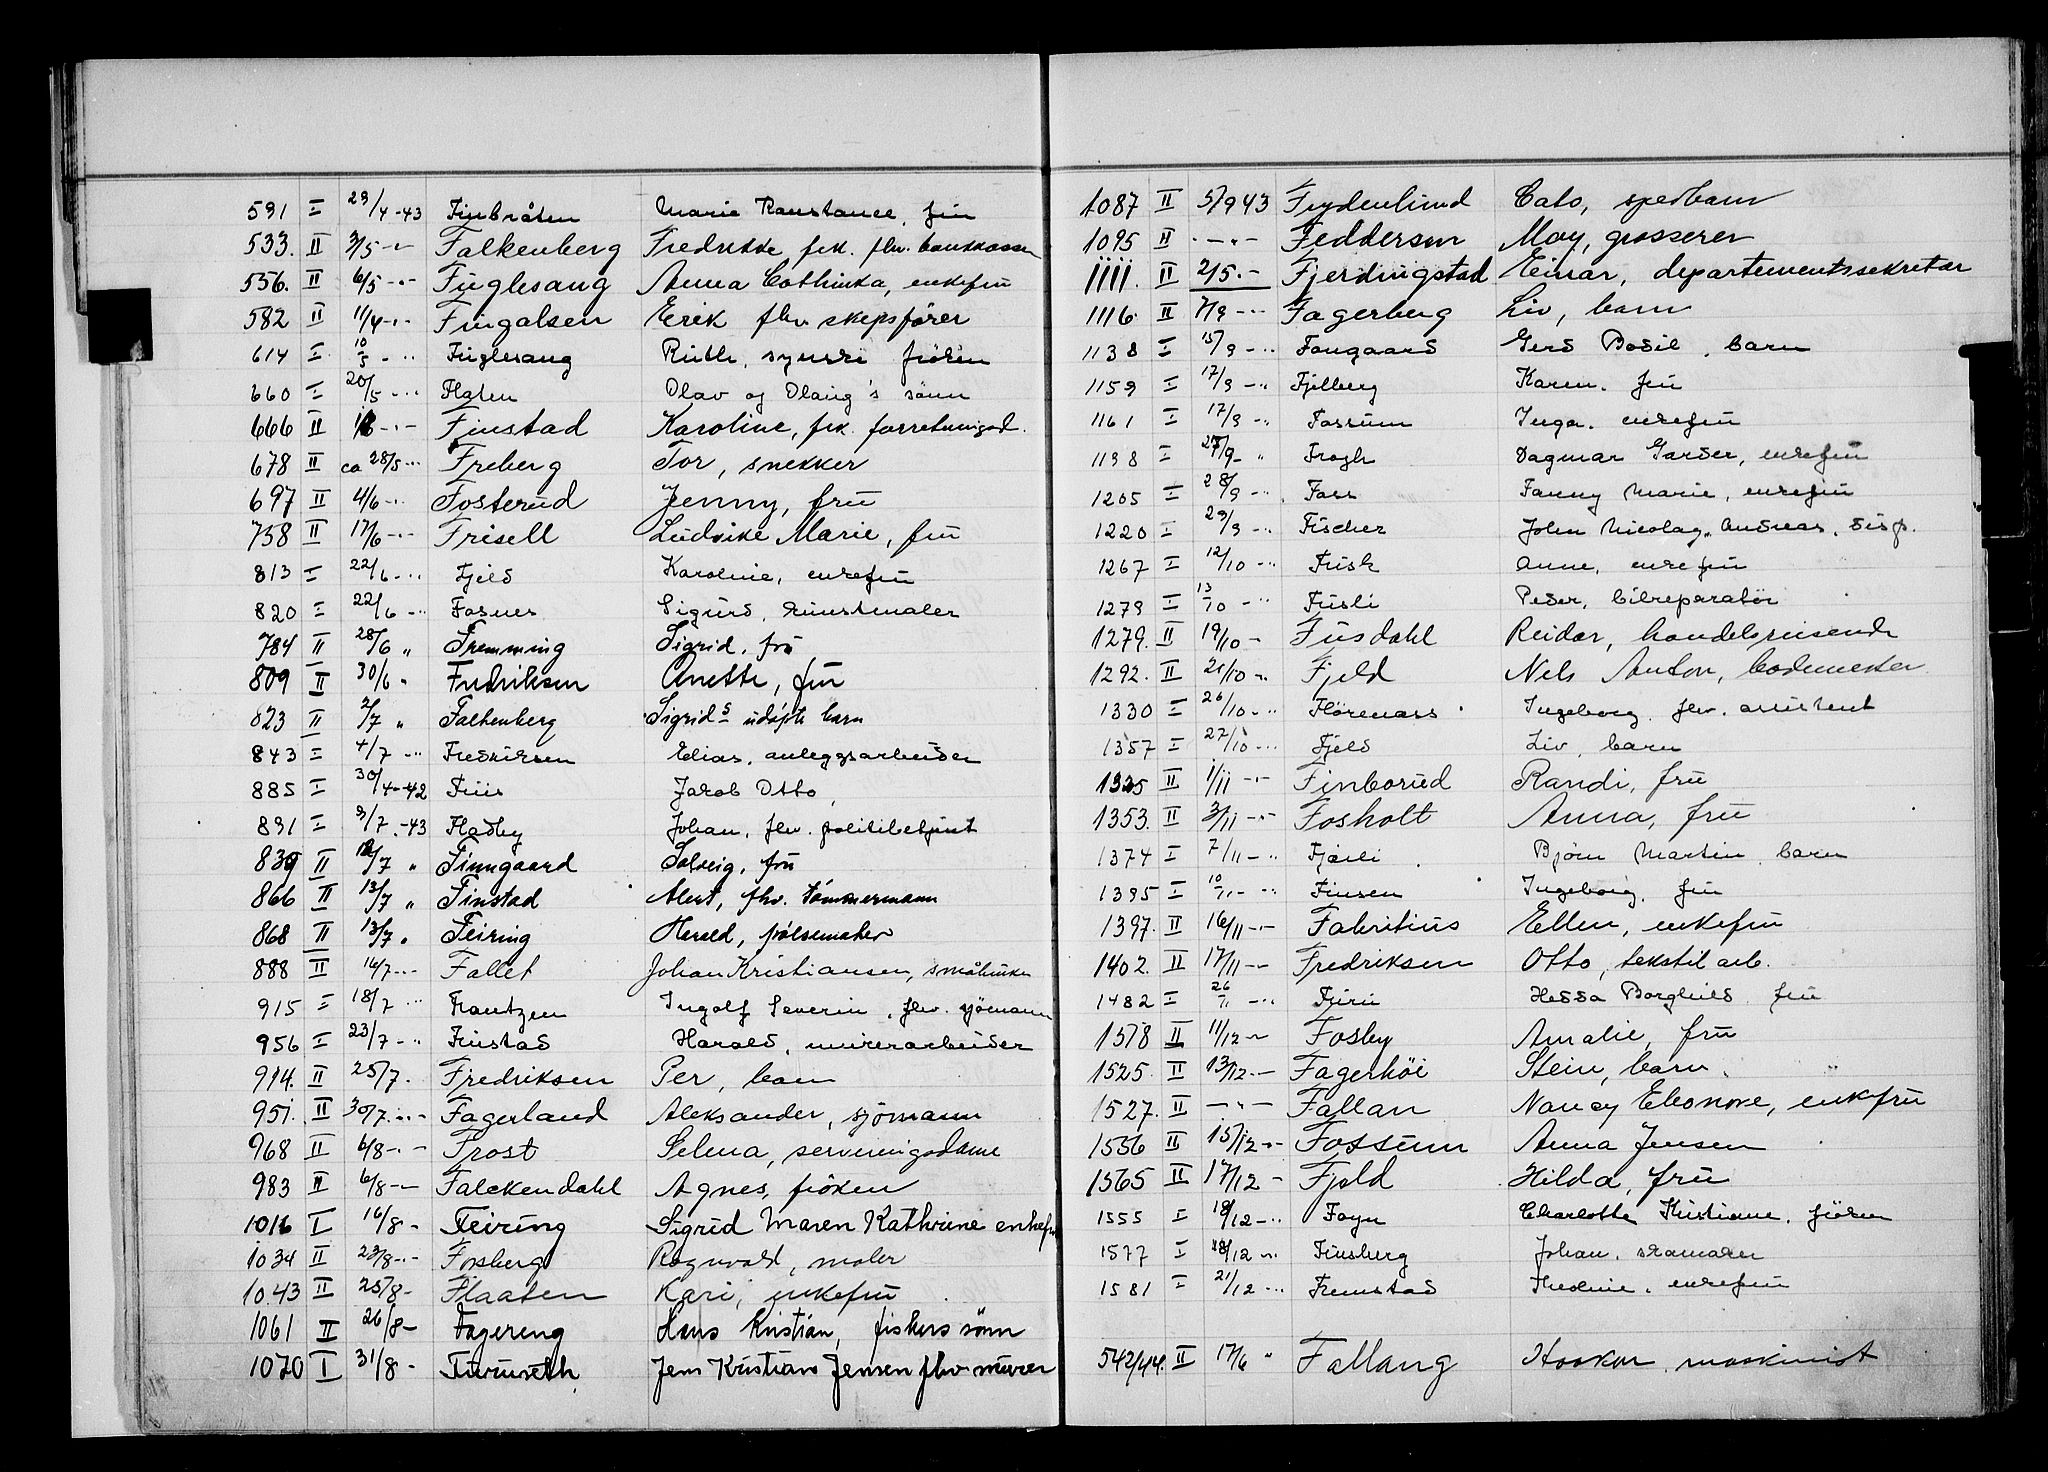 531 I 29/4-43 Finbråten Marie Konstance, fru
533. II 3/5-"- Falkenberg Fredrikke, frk. fhv. bankkasser
556. II 6/5-"- Fuglesang Anna Cathinka, enkefru
582 II 11/4-"- Fingalsen Erik fhv. skipsfører
614 I 10/5-" Fuglesang Ruth, sykepl. frøken
660 I 20/5-" Flaten Olav og Olaug's sønn
666 II -"- Finstad Karoline, frk. forretningsd.
678 II ca 28/5-" Freberg Tor, snekker
697 II 4/6-" Fosterud Jenny, fru
758 II 17/6-" Frisell Ludvike Marie, fru
813 I 22/6-" Fjeld Karoline, enkefru
820 I 22/6-" Fosnes Sigurd, kunstmaler
784 II 28/6 " Fremming Sigrid, fru
809 II 30/6 " Fredriksen Anette, fru
823 II 2/7 " Falkenberg Sigrids udøpte barn
843 I 4/7-" Fredriksen Elias, anleggsarbeider
885 I 30/4-42 Friis Jakob Otto,
831 I 9/7-43 Fladby Johan, fhv. politibetjent
839 II 12/7 " Finngaard Solveig, fru
866 II 13/7 " Finstad Alert, fhv. tømmermann
868 II 13/7 " Feiring Harald, pølsemaker
888 II 16/7-" Fallet Johan Kristiansen, småbruker
915 I 18/7-" Frantzen Ingolf Severin, fhv. sjømann
956 I 23/7-" Finstad Harald, murerarbeider
914. II 25/7. Fredriksen Per, barn
951. II 30/7-"- Fagerland Aleksander, sjømann
968 II 6/8-"- Frost Selma, serveringsdame
983 II 6/8-"- Falckendahl Agnes, frøken
1016 I 16/8- Feiring Sigrid Maren Kathrine enkefr
1034 II 23/8-" Fosberg Ragnvald, maler
1043 II 25/8- Flaaten Kari, enkefru
1061 II 26/8- Fagereng Hans Kristian, fiskers sønn
1070 I 31/8- Furuseth Jens Kristian Jensen fhv murer
1087 II 5/9 43 Frydenlund Cato, spedbarn
1095 II -"- Feddersen May, grosserer
1111. II 2/5.- Fjerdingstad Einar, departementssekretær
1116. II 7/9-" Fagerberg Liv, barn
1138 I 15/9-" Fougaard Gerd Bodil, barn
1159 I 17/9-" Fjelberg Karen, fru
1161 I 17/9-" Fossum Inga, enkefru
1198 I 27/9- " Frogh Dagmar Garder, enkefru
1205 I 28/9-" Foss Fanny Marie, enkefru
1220 I 29/9-" Fischer John Nicolay Andreas, disp.
1267 I 12/10-" Frisk Anne, enkefru
1279 I 13/10-" Fusli Peder, bilreparatør
1279. II 19/10- Fusdahl Reidar, handelsreisende
1292. II 21/10-" Fjeld Nels Anton, bademester
1330 I 26/10-" Flörenæss Ingeborg, fhv. assistent
1357 I 27/10-" Fjeld Liv, barn
1325 II 1/11-"- Finborud Randi, fru
1353. II 3/11-"- Fosholt Anna, fru
1374 I 7/11-" Fjærli Bjørn Martin, barn
1395 I 10/11-" Finsen Ingeborg, fru
1397. II 16/11-"- Fabritius Ellen, enkefru
1402. II 17/11-- Fredriksen Otto, tekstilarb.
1482 I 26/11-" Hedda Borghild fru
1518 II 11/12- Fosby Amalie, fru
1525. II 13/12.- Fagerhöi Stein, barn.
1527. II -"- Fallan Nancy Eleonore, enkefru
1556 II 15/12-" Fossum Anna Jensen
1565 II 17/12- Fjeld Hilda, fru
1555 I 18/12-" Foyn Charlotte Kristiane, frøken
1577 I 18/12-" Finsberg Johan, skomaker
1581 I 21/12-" Fremstad Thedine, enkefru
542/44. II 17/6 " Fallang Haakon, maskinist